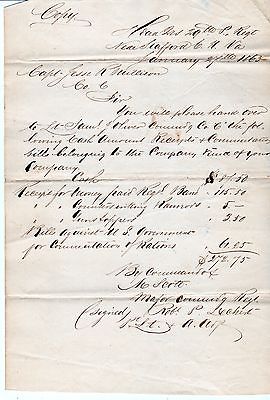 Copy
Head Qrs 29th P. Regt
Near Stafford C. H. Va
January 27th 1863
Capt Jesse R Millison
Co. C
Sir
You will please hand over
to Lt Saml Oliver Comndg Co C the fol
lowing Cash Amount Receipts & Commutation
bills belonging to the Company Fund of your
Company
Cash
Receipt for money paid Regtl Band " 115.50
" " Countersinking Cannons " 5 -
" " Gun Stoppers " 2.50
4 Bills against U S Government
for Commutation of Rations " 61.25
$272.75
By Command of
M Scott
Major Comndg Regt
(Signed) Robt P
1st Lt & A. Adjt